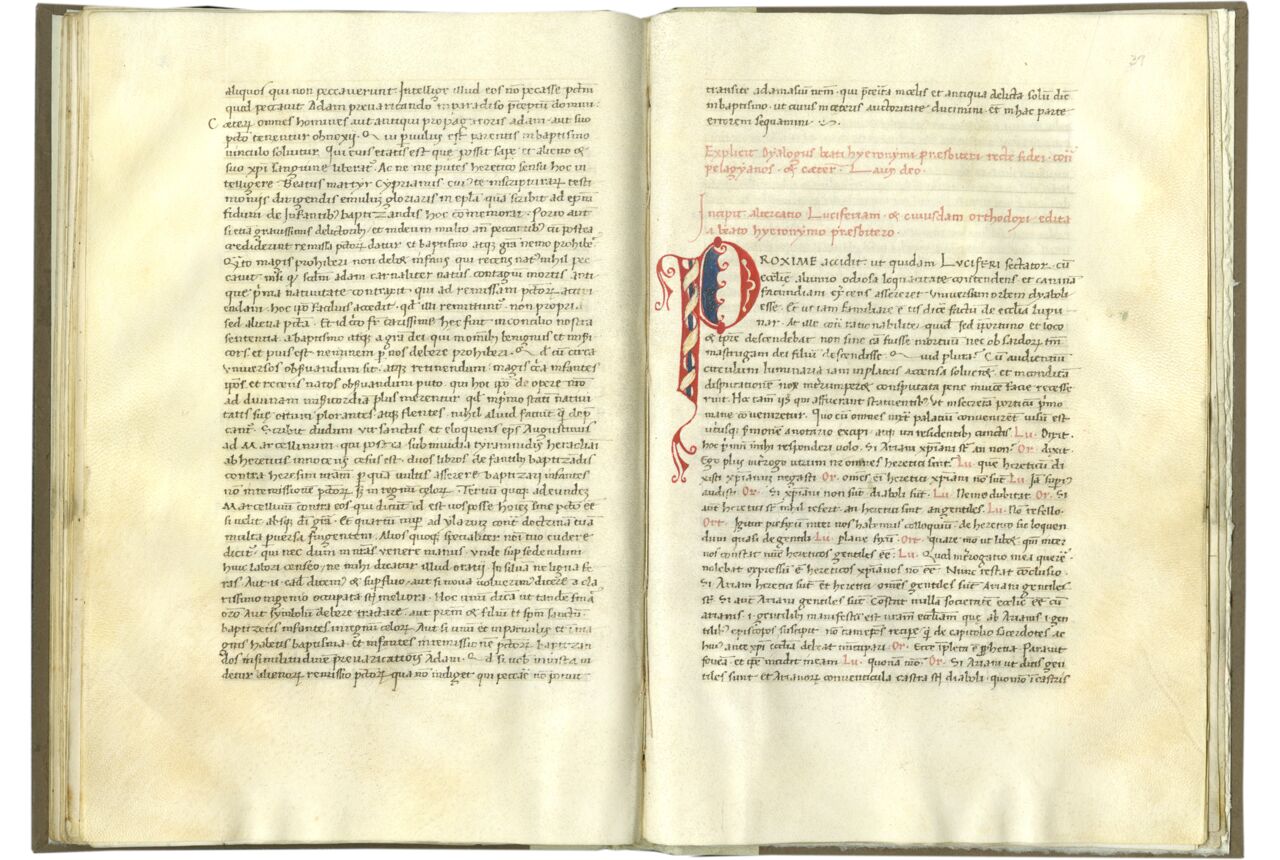 aliquos qui non peccaverunt Intellige illud eos nō peccasse pctm
quod peccavit Adam prevaricando in paradiso preceptum domini:
Ceteri omnes homines aut antiqui propagatoris adam aut suo
pcto tenentur obnoxii. Qui pvulus est parentis in baptismo
vinculo solvitur. Qui eius etatis est que possit sape et alieno &
suo xpi sanguine liberat. Ac ne me putes heretico sensu hoc in
telligere Beatus martyr Cyprianus cui te inscripturar testi
moniis dirigendis emulum gloriaris in epla qua scribit ad epm
fidum de Infantib baptizandis hoc comemorat. Porro aut
si etia gravissimis delictorib et in deum multo an peccantib cu postea
crediderint remissa pctor datur et baptismo atq gra nemo prohibet
Quto magis prohiberi non debet infans qui recens nat nihil pec
cavit nisi q scdm adam carnaliter natus contagium mortis anti
que prima nativitate contraxit qui ad remissam pctor accipi
endam hoc ipo facilius accedit. qd illi remittunt non propria
sed aliena pcta. Et idco fr carissime hec fuit in concilio nostra
sententia a baptismo atq a gra dei qui omnib benignus et mis
cors et pius est neminem p nos debere prohiberi. Qd cu circa
vniversos obsvandum sit. atq retinendum magis cca infantes
ipos et recens natos obsvandum puto. qui hoc ipo de ope nro
ad divinam misicordia plus merentur qd in pmo stati nativi
tatis sue ortum plorantes atq flentes. nihil aliud faciut q dep
cant. Scribit dudum vir sanctus et eloquens eps Augustinus
ad Marcellinum. qui postea sub invidia tyrannidis heracliai
ab hereticis innocens cesus est. duos libros de fantib baptizādis
contra heresim vram p qua vultis asserere baptizari infantes
no in remissione pctor sz in regnu celor. Tertiu quoq ad eundez
Marcellinum contra eos qui dicut id est vos posse hoies sine pcto ee
si velit absq di gra. Et quartu nup ad ylariū cont doctrina tua
multa pversa fingentem. Alios quoq specialiter noi tuo cudere
dicit. qui nec dum in nras venere manus. vnde supsedendum
huic labori censeo ne mihi dicatur illud oratii. In silva ne ligna fe
ras Aut .n. eadē dicem & supfluo aut si nova voluerim dicere a cla
rissimo ingenio occupata st meliora. Hoc unu dica ut tande finia
oro Aut symbolu debere tradere aut prem & filiu et spm sanctu.
baptizetis infantes in regnu celor. Aut si unu et in parvulis et i ma
gnis habetis baptisma et infantes in remissione pctor baptizan
dos in similitudine prevaricatiois Adam. Qd si vob iniusta vi
detur alienor remissio pctor qua no indiget qui peccae no potuit
37
transite ad amasiu vrm. qui pcēta in celis et antiqua delicta solui dic
in baptismo. ut cuius in ceteris auctoritate ducimini. et in hac parte
errorem sequamini.
Explicit Dyalogus beati hyeronymi presbiteri recte fidei. con
pelagyanos. & ceter. Laus deo.
Incipit altercatio Luciferiani. & cuiusdam orthodoxi edita
a beato hyeronymo presbitero.
PROXIME accidit. ut quidam LUCIFERI sectator. cu
ecclie alumno odiosa loquacitate contendens. et canina
facundiam exercens assereret vniversum orbem dyaboli
esse. Et ut iam familiare e eis dice factu de ecclia lupu
nar. At ille cont rationabilit quid sed iportuno et loco
& tpre descendebat non sine ca fuisse mortuu nec ob sardor tm
mastrugam dei filiu descendisse. Quid plura? Cu audientiu
circulum luminaria iam in plateis accensa solueret et incondita
disputatione nox interrumperet consputata pene invice facie recesse
runt. Hoc tam iis qui affuerant statuentib ut in secreta porticu pmo
mane coveniretur. Quo cu omnes intra palatu convenirent visu est
utiusq smone anotario excipi. atq un residentib cunctis. Lu. Dixit.
hoc pmu mihi responderi volo. Si Ariani xpiani st an non? Or. dixit.
Ego plus interrogo utrum ne omnes heretici sint? Lu. que hereticu di
xisti xpianu negasti. Or. omes ei heretici xpiani no sut. Lu. Ia supi?
audisti. Or. Si xpiani non sut diaboli sut. Lu. Nemo dubitat. Or. Si
aut heretici st nihil refert. an heretici sint. an gentiles. Lu. No refello.
Ort. Igitur pfixu inter nos habemus colloquiu. de heretico sic loquen
dum quasi de gentili. Lu. plane fixu. Ort. quare mo ut libet. qm inter
nos constat nuc hereticos gentiles ee. Lu. Quod interrogatio mea querere
nolebat expressu e hereticos xpianos no ee. Nunc restat coclusio.
Si Ariani heretici sut et heretici omes gentiles sut Ariani gentiles
st. Si aut Ariani gentiles sut. Costat nulla societate ecclie ee cu
arianis .i. gentilib manifesta est vram eccliam que ab Arianis .i. gen
tilib episcopos suscipit no ta epos recipe q de capitolio sacerdotes ac
p hoc ante xpi ecclia debeat nuncupari. Or. Ecce ipleta e pphetia Paravit
fovea. et ipe incidit in eam. Lu. quona mo? Or. Si Ariani ut dicis gen
tiles sunt. et Arianor conventicula castra st diaboli. quomo i castris